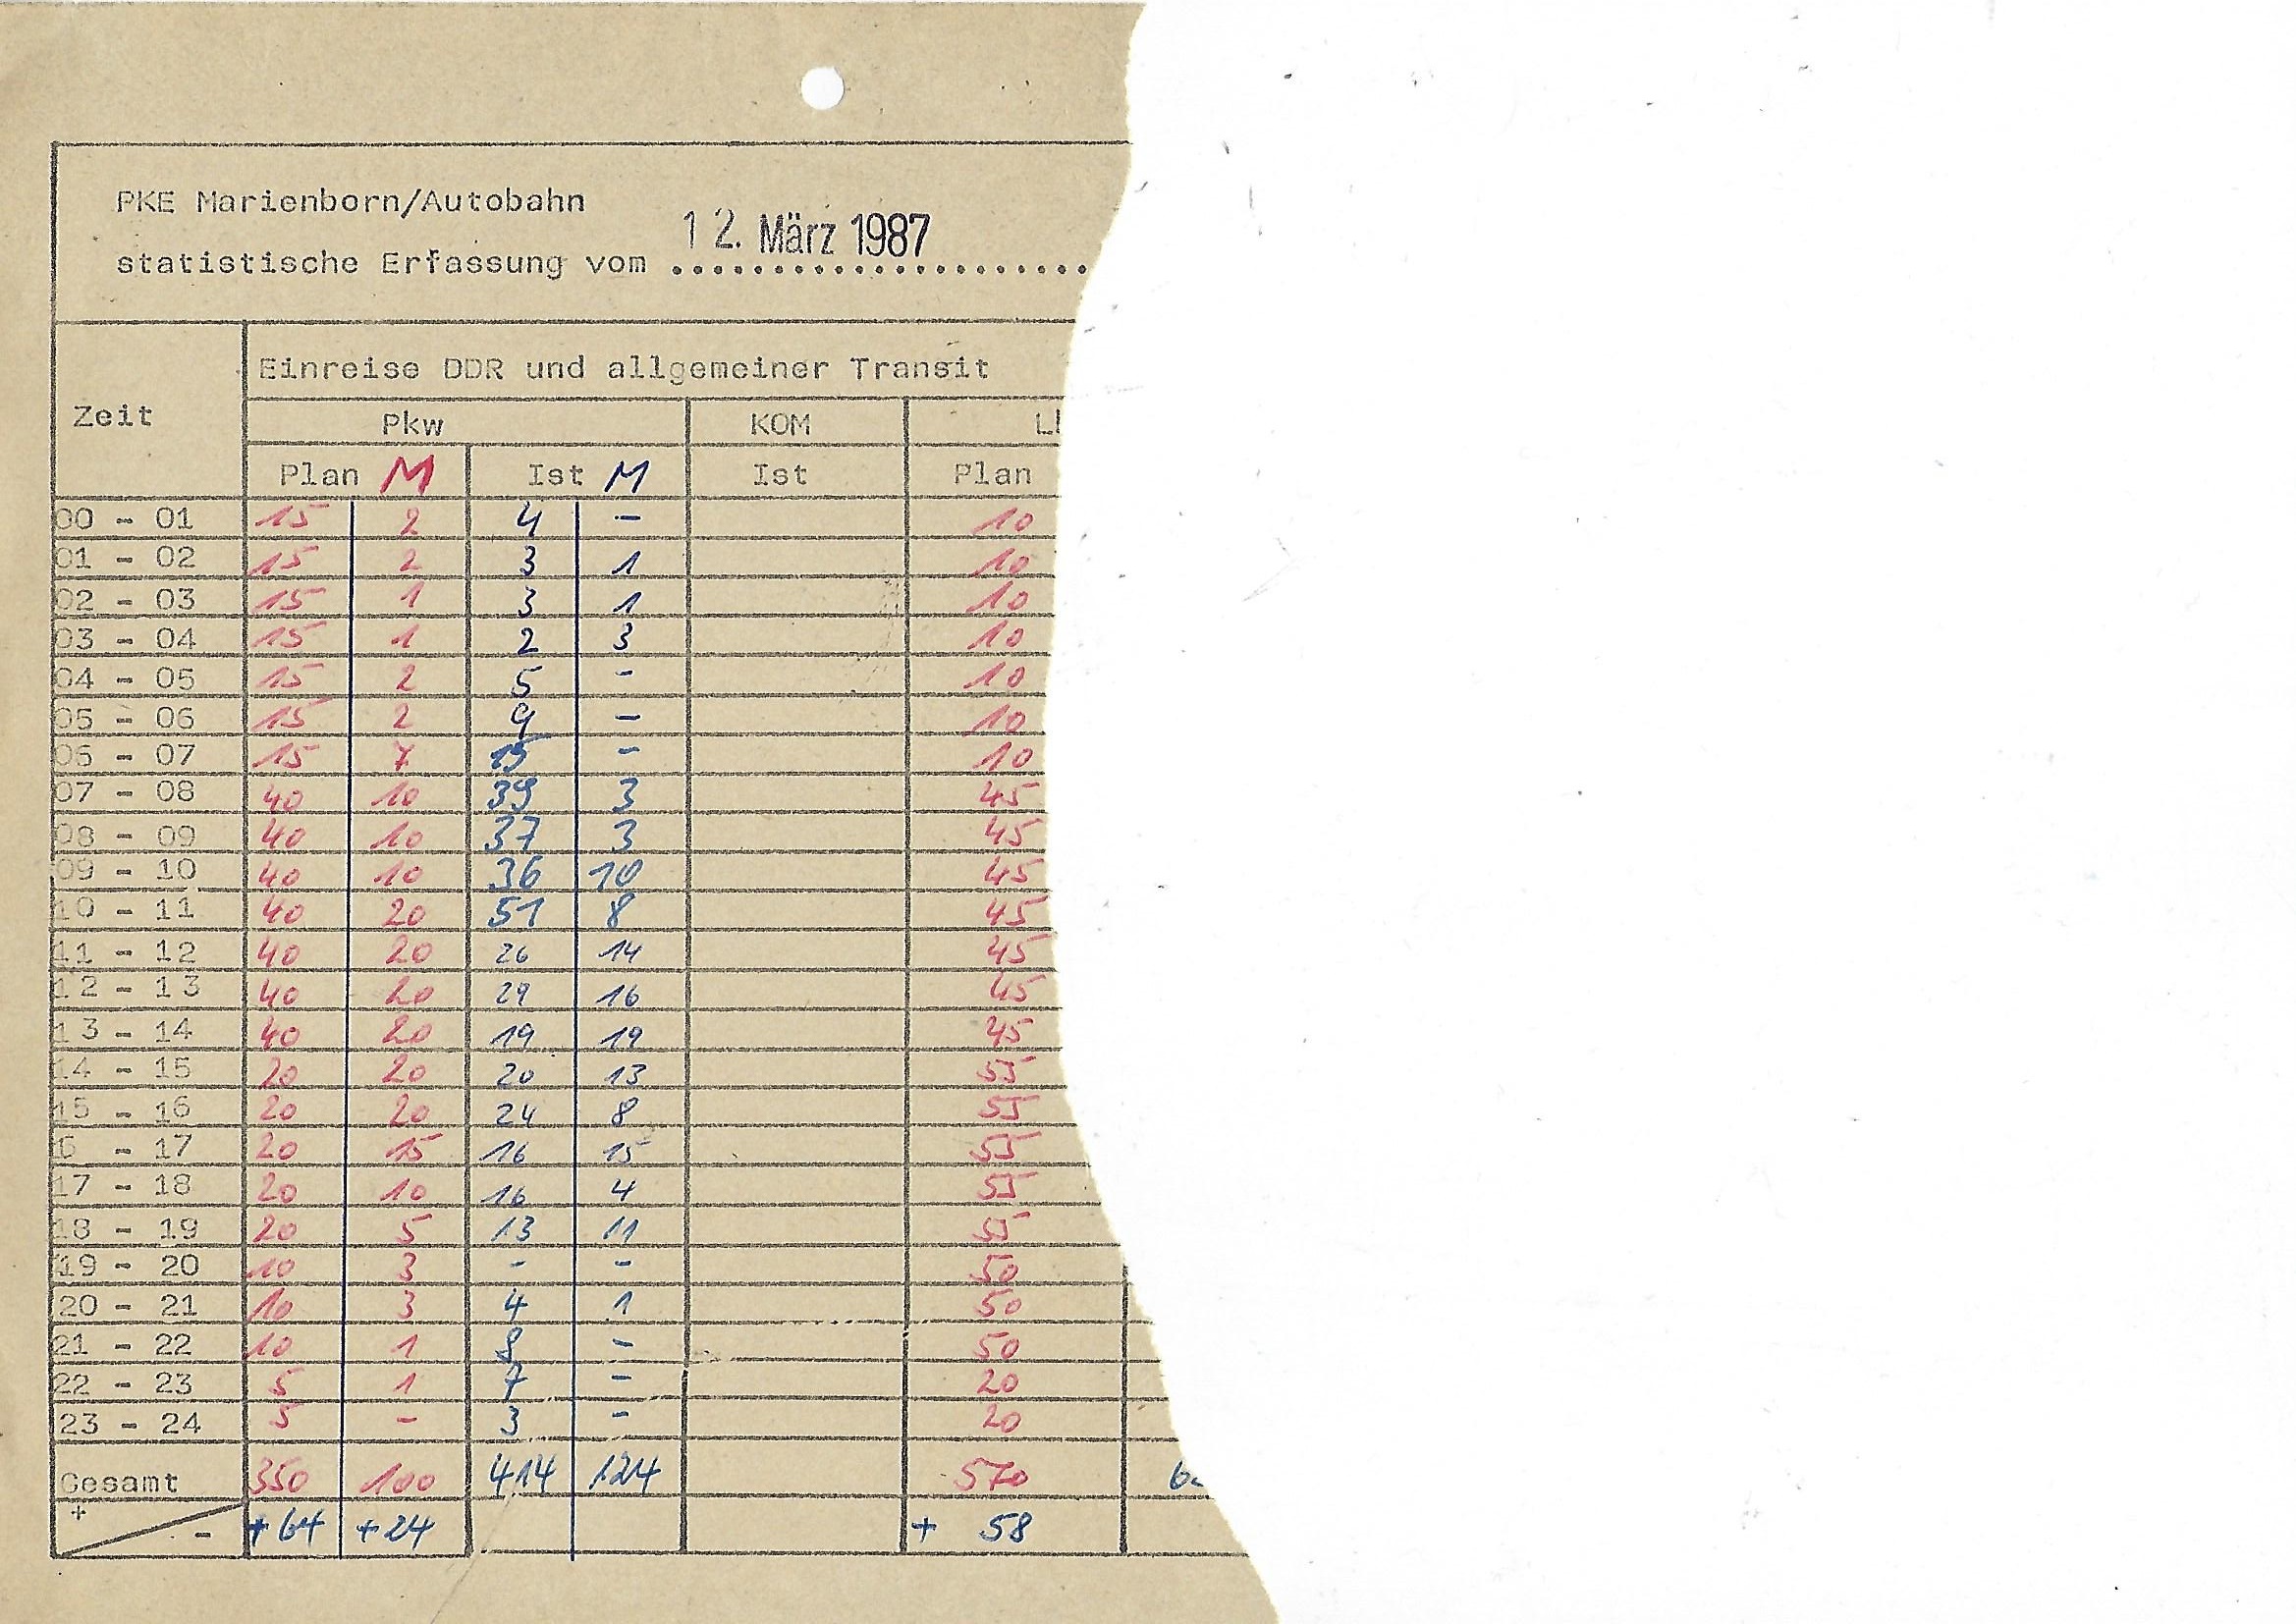 PKE Marienborn/Autobahn
12. März 1987
statistische Erfassung vom ......................
Zeit
Einreise DDR und allgemeiner Transit
Pkw KOM
Plan M Ist M Ist Plan
00 - 01 15 2 4 - 10
01 - 02 15 2 3 1 10
02 - 03 15 1 3 1 10
03 - 04 15 1 2 3 10
04 - 05 15 2 5 - 10
05 - 06 15 2 9 - 10
06 - 07 15 7 15 - 10
07 - 08 40 10 39 3 45
08 - 09 40 10 37 3 45
09 - 10 40 10 36 10 45
10 - 11 40 20 51 8 45
11 - 12 40 20 26 14 45
12 - 13 40 20 29 16 45
13 - 14 40 20 19 19 45
14 - 15 20 20 20 13 55
15 - 16 20 20 24 8 55
6 - 17 20 15 16 15 55
17 - 18 20 10 16 4 55
18 - 19 20 5 13 11 55
19 - 20 10 3 - - 50
20 - 21 10 3 4 1 50
21 - 22 10 1 8 - 50
22 - 23 5 1 7 - 20
23 - 24 5 - 3 - 20
Gesamt 350 100 414 124 570
+ - +64 +24 + 58